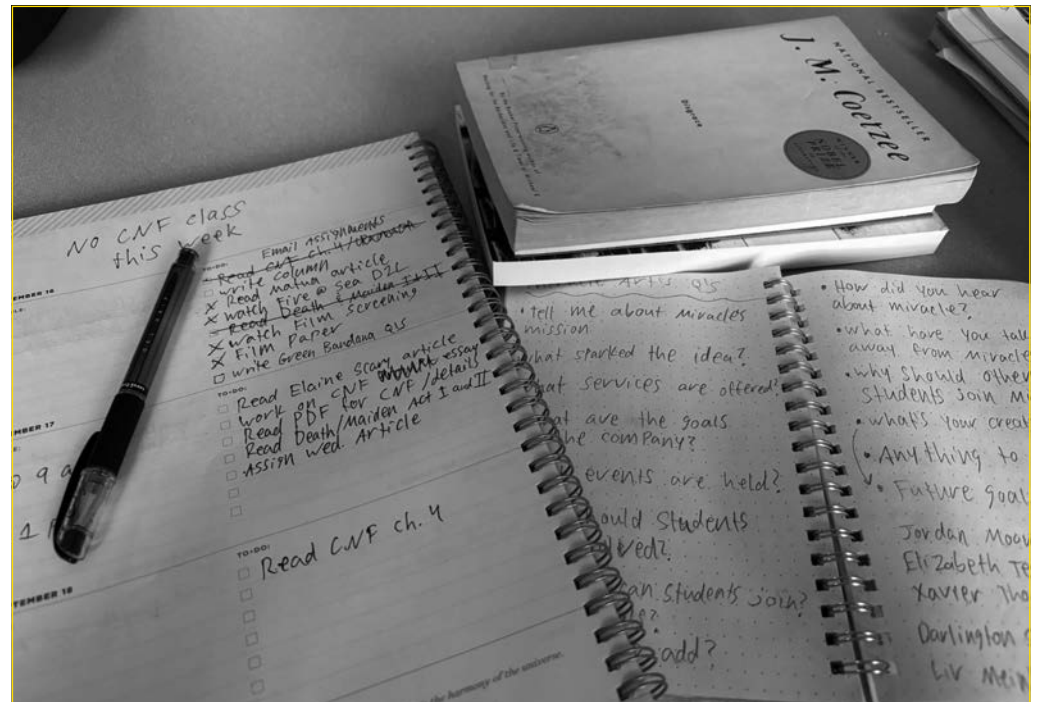 NO CNF class
this week
TO-DO:
Email Assignments
Read CNF Ch. 4/
write column
Read Matua article
watch Fire @ Sea D2L
Read Death & Maiden I + II
watch Film Screening
Film Paper
write Green Bandana Q's
TO-DO:
Read Elaine Scary article
work on CNF essay
Read PDF for CNF/details
Read Death/Maiden Act I and II
Assign Wed. Article
TO-DO:
Read CNF ch. 4
EMBER 16
MBER 17
TEMBER 18
the harmony of the universe.
NATIONAL BESTSELLER
J. M. Coetzee
Disgrace
WINNER
OF THE
NOBEL
PRIZE
Arts Q's
• tell me about Miracles
mission
what sparked the idea?
what services are offered?
at are the goals
the company?
events are held?
ould Students
lved?
can Students join?
add?
• How did you hear
about miracle?
• what have you tak
away from Miracle
• why should other
Students join Mi
• what's your creat
• Anything to
• Future goal
Jordan
Elizabeth Te
Xavier Tho
Darlington
Liv Mein